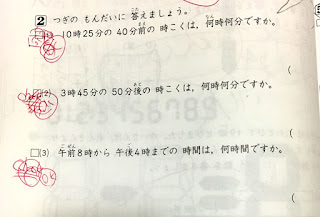 2 つぎの もんだいに 答えましょう。
10時25分の 40分前の 時こくは，何時何分ですか。
(
□(2) 3時45分の 50分後の 時こくは，何時何分ですか。
(
□(3) 午前8時から 午後4時までの 時間は，何時間ですか。
(